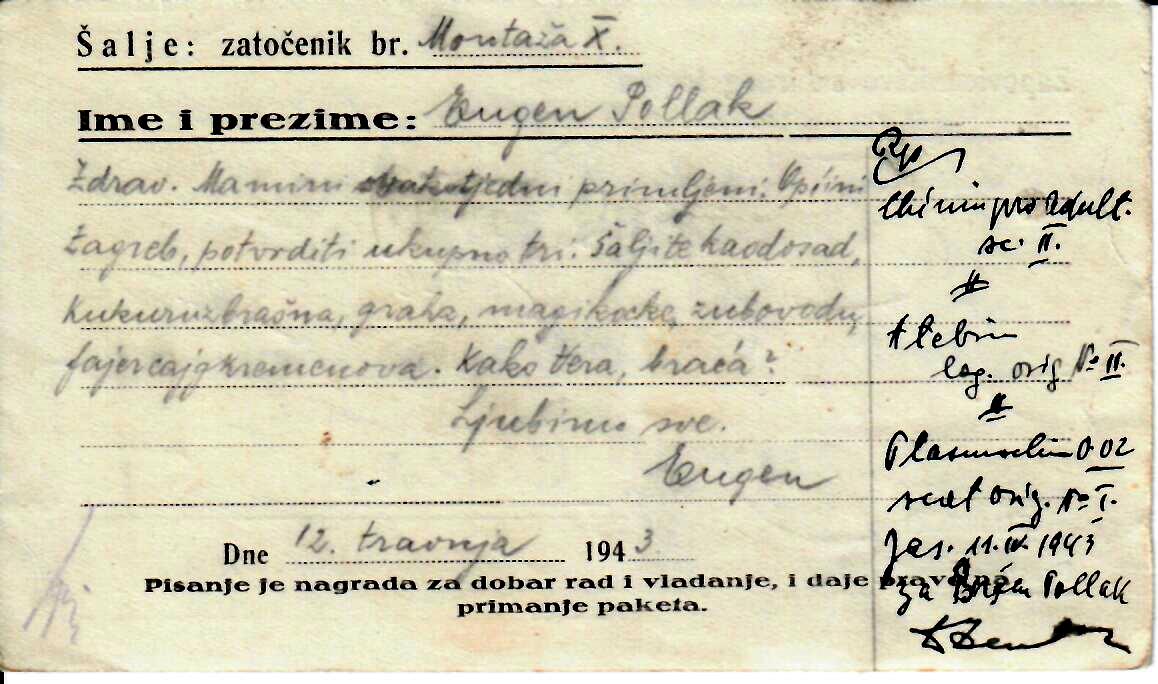 Šalje: zatočenik br. Montaža X.
Ime i prezime: Eugen Pollak
Zdrav. Mamini tjedni primljeni. Općini
Zagreb, potvrditi ukupno tri. Šaljite kaodosad,
kukuruzbrašna, graha, magikocke, zubovodu,
fajercajgkremenova. Kako Vera, braća?
Ljubimo sve.
Eugen
Dne 12. travnja 1943
Pisanje je nagrada za dobar rad i vladanje, i daje pravo na
primanje paketa.
Rp
Chinin pro adult.
sc. II.
#
Atebrin
lag. orig. No II.
#
Plasmochin 0.02
scat orig. No I.
Jas. 11.IV.1943
za Pollak